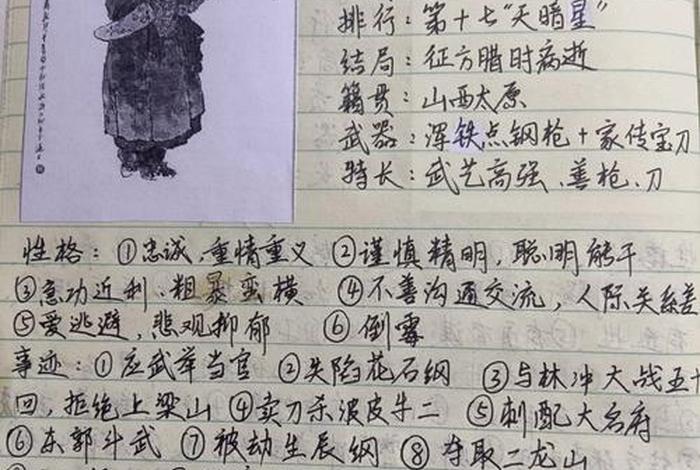 排行：第十七“天暗星”
结局：征方腊时病逝
籍贯：山西太原
武器：浑铁点钢枪+家传宝刀
特长：武艺高强、善枪、刀
性格：①忠诚、重情重义 ②谨慎精明，聪明能干
③急功近利、粗暴蛮横 ④不善沟通交流，人际关系差
⑤爱逃避，悲观抑郁 ⑥倒霉
事迹：①应武举当官 ②失陷花石纲 ③与林冲大战五十
回，拒绝上梁山 ④卖刀杀泼皮牛二 ⑤刺配大名府
⑥东郭斗武 ⑦被劫生辰纲 ⑧夺取二龙山